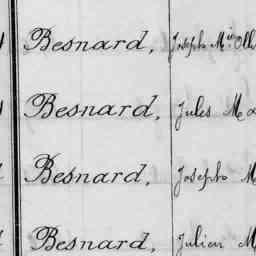 Besnard, Joseph Mie
Besnard, Jules M
Besnard, Joseph M
Besnard, Julien M